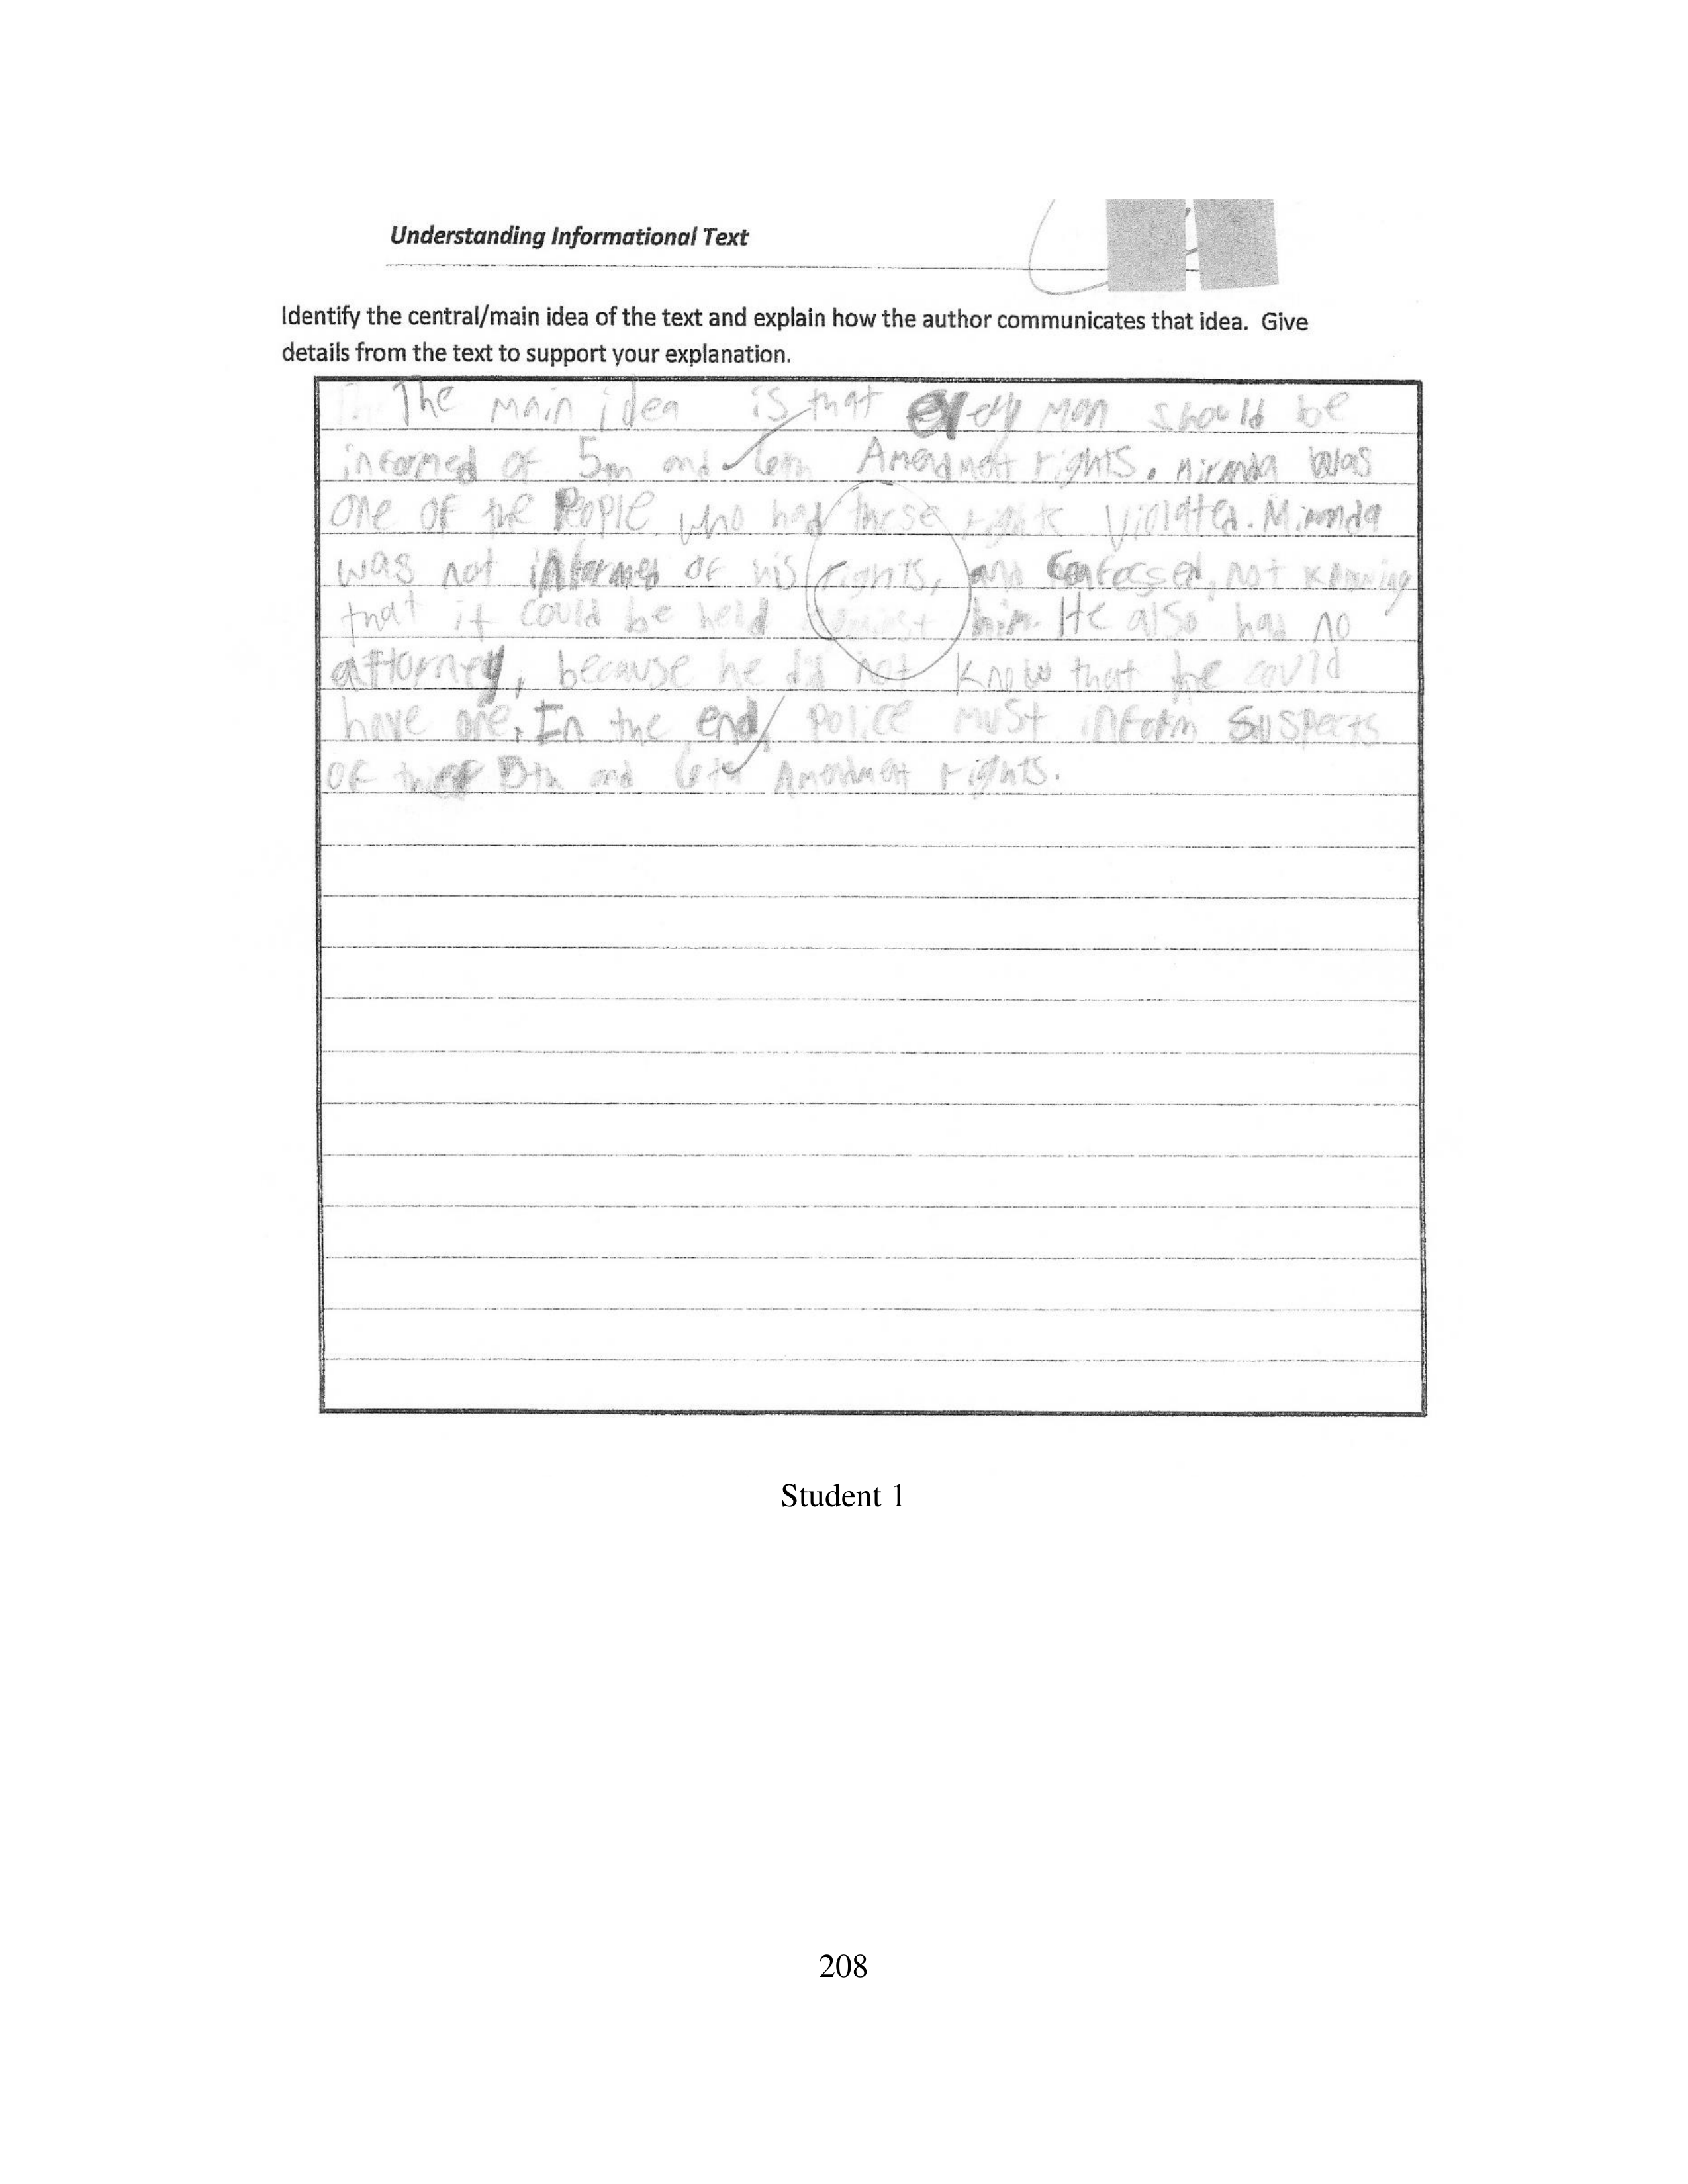 Understanding Informational Text
Identify the central/main idea of the text and explain how the author communicates that idea. Give
details from the text to support your explanation.
The main idea is that every man should be
informed of 5th and 6th Amendment rights. Miranda was
one of the People who had these rights violated. Miranda
was not informed of his rights, and confessed, not knowing
that it could be held against him. He also had no
attorney, because he did not know that he could
have one. In the end, police must inform suspects
of 5th and 6th Amendment rights.
Student 1
208